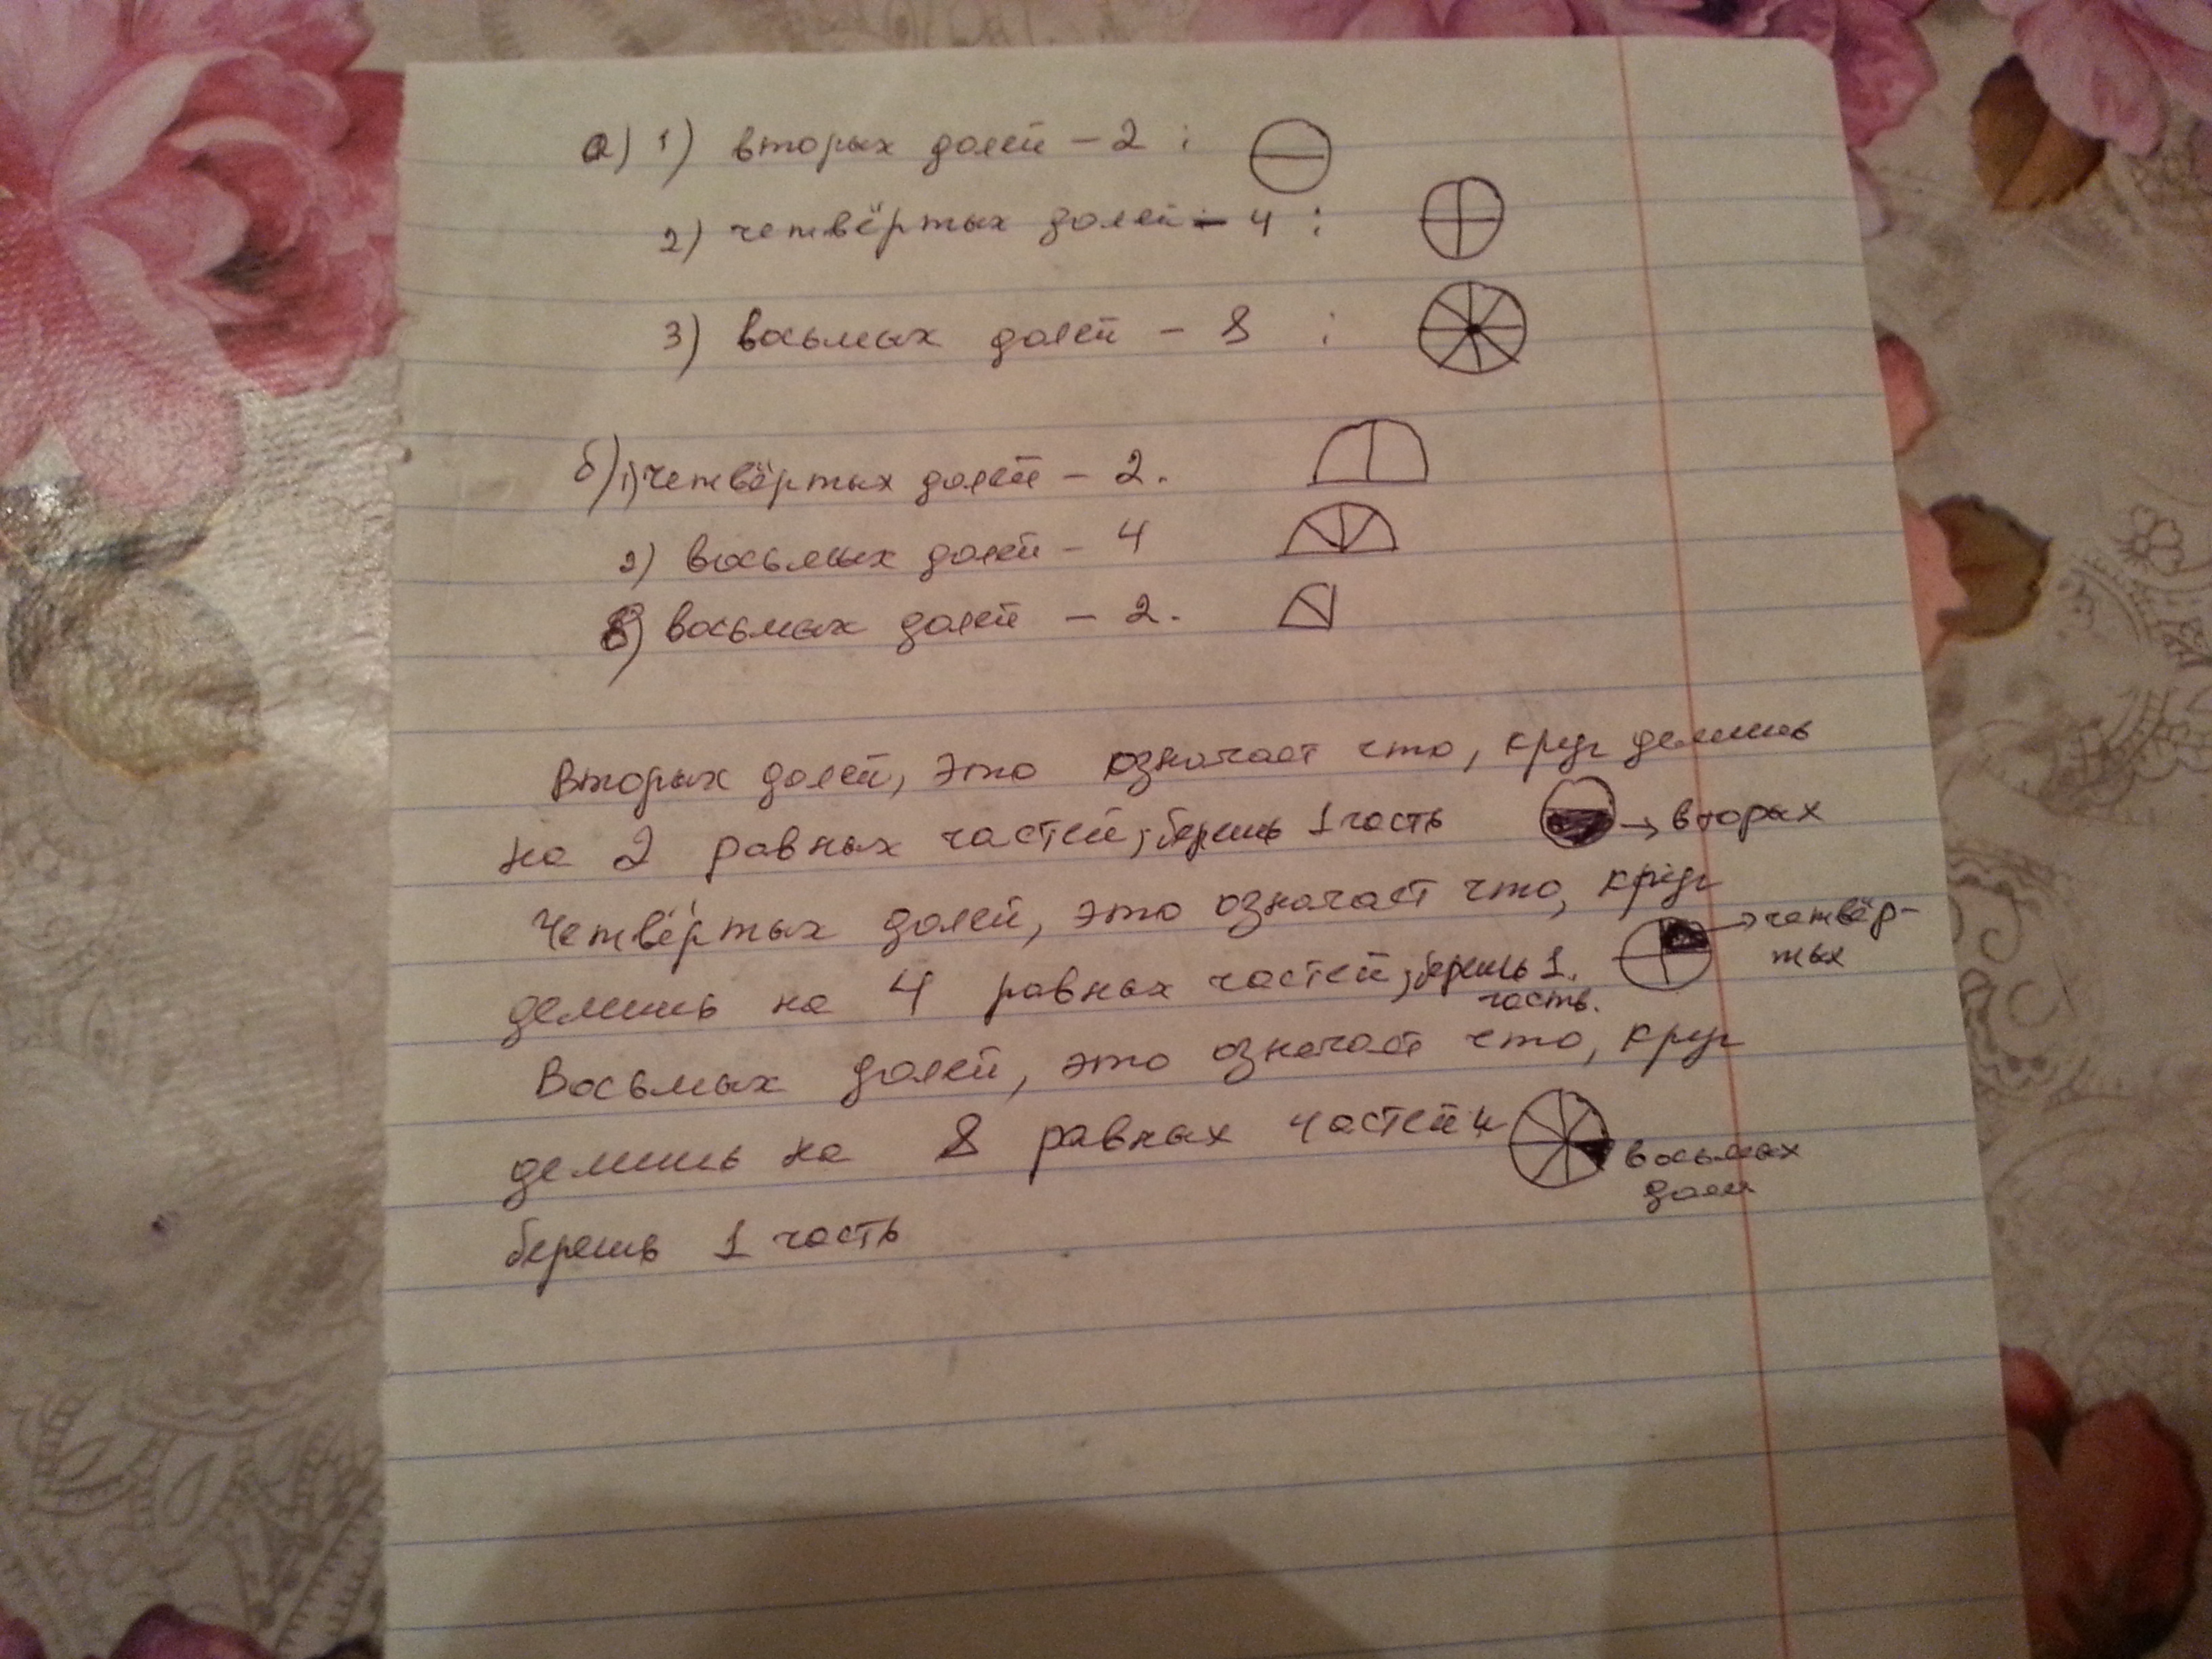 а) 1) вторых долей – 2 ;
2) четвёртых долей – 4 ;
3) восьмых долей – 8 ;
б) 1) четвёртых долей – 2.
2) восьмых долей – 4
в) восьмых долей – 2.
Вторых долей, это означает что, круг делишь
на 2 равных частей, берешь 1 часть → вторых
Четвёртых долей, это означает что, круг
→ четвёр-
тых
делишь на 4 равных частей, берешь 1.
часть.
Восьмых долей, это означает что, круг
делишь на 8 равных частей и
восьмых
долей
берешь 1 часть